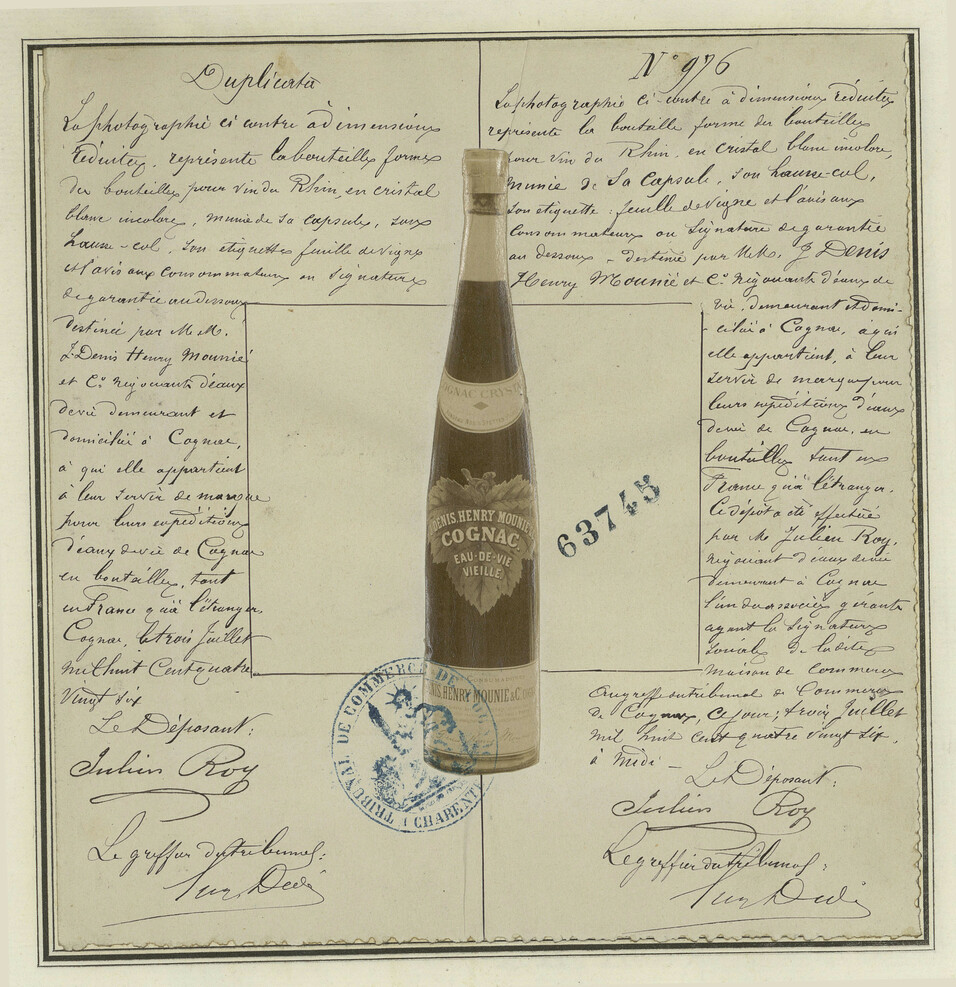 Duplicata
La photographie ci contre à dimensions
réduites, représente la bouteille forme
des bouteilles pour vin du Rhin, en cristal
blanc incolore, munie de sa capsule, son
hausse-col, son etiquette feuille de vigne
et l'avis aux consommateurs ou signature
de garantie au dessous
destinée par M.M.
J. Denis Henry Mounié
et Cº négociants d'eaux
de vie demeurant et
domiciliés à Cognac,
à qui elle appartient
à leur servir de marque
pour leurs expéditions
d'eaux de vie de Cognac
en bouteilles, tant
en France qu'à l'étranger,
Cognac, le trois Juillet
mil huit cent quatre
vingt six
Le Déposant:
Julien Roy
Le greffier du tribunal:
Nº 976
La photographie ci-contre à dimensions réduites
représente la bouteille forme des bouteilles
pour vin du Rhin, en cristal blanc incolore,
munie de sa capsule, son hausse-col,
son etiquette: feuille de vigne et l'avis aux
consommateurs ou signature de garantie
au dessous - destinée par M.M. J. Denis
Henry Mounié et Cº négociants d'eaux de
vie, demeurant et domi-
-ciliés à Cognac, à qui
elle appartient, à leur
servir de marque pour
leurs expéditions d'eaux
de vie de Cognac, en
bouteilles tant en
France qu'à l'étranger.
Ce dépôt a été effectué
par M. Julien Roy,
négociant d'eaux de vie
demeurant à Cognac
l'un des associés gérants
ayant la signature
sociale de ladite
maison de commerce
Au greffe du tribunal de Commerce
de Cognac, ce jour; trois Juillet
mil huit cent quatre vingt six,
à midi -
Le Déposant:
Julien Roy
Le greffier du tribunal:
OGNAC CRYST
DENIS, HENRY MOUNIE
COGNAC.
EAU-DE-VIE
VIEILLE
NIS, HENRY MOUNIE & C. COG
63745
TRIBUNAL DE COMMERCE DE
CHARENTE